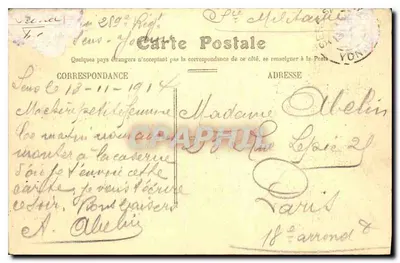 289e Regt
Sens - Yonne
Fce Militaire
Carte Postale
Quelques pays étrangers n'acceptant pas la correspondance de ce côté, se renseigner à la Poste
CORRESPONDANCE
ADRESSE
Sens le 13-11-1914
Ma chère petite femme
ce matin nous
monter à la caserne
d'où je t'envoie cette
carte, je vais t'écrire
ce soir. Bons baisers
A. Abelin
Madame Abelin
Rue Lepic 21
Paris
18e arrondt
CPAPHIL
YONNE